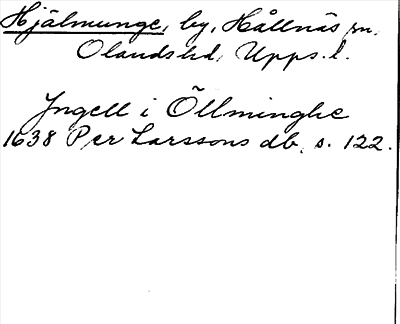 Hjälmunge, by, Hållnäs sn.
Olands hd, Upps. l.
Ingell i Öllminghe
1638 Per Larssons db, s. 122.